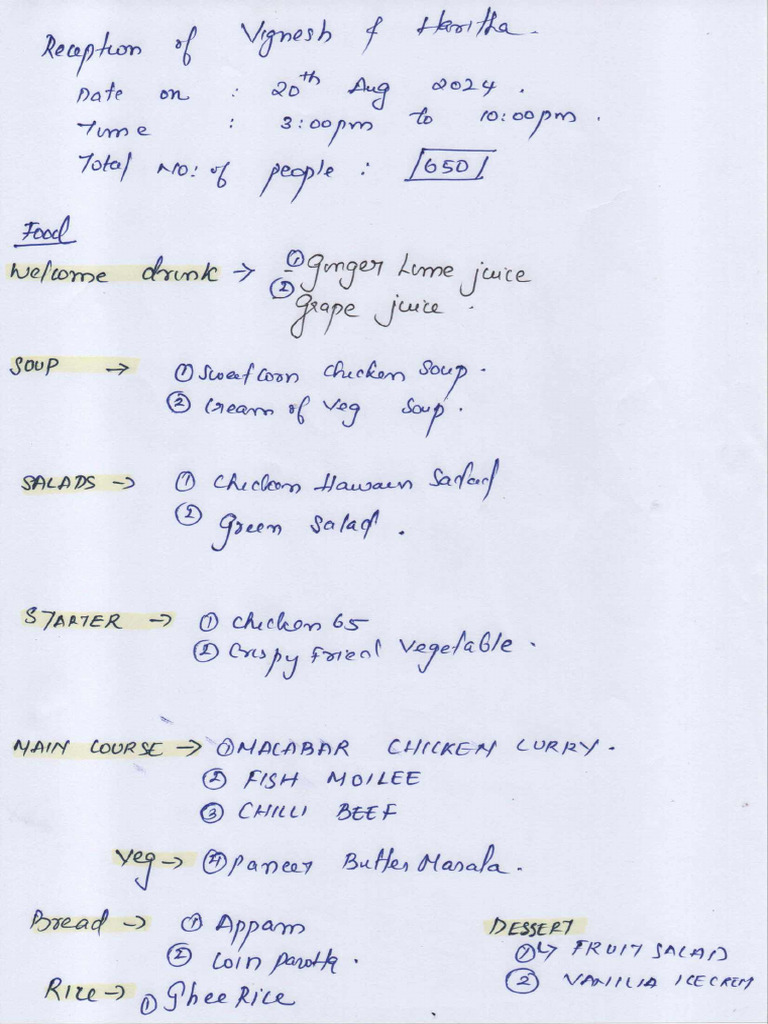 Reception of Vignesh & Haritha.
Date on : 20th Aug 2024.
Time : 3:00pm to 10:00pm.
Total No: of people : 650
Food
Welcome drink → ① Ginger Lime juice
② Grape juice.
SOUP → ① Sweetcorn Chicken Soup.
② Cream of Veg Soup.
SALADS → ① Chicken Hawain Salad
② Green Salad.
STARTER → ① Chicken 65
② Crispy Fried Vegetable.
MAIN COURSE → ① MALABAR CHICKEN CURRY.
② FISH MOILEE
③ CHILLI BEEF
Veg → ④ Paneer Butter Masala.
Bread → ① Appam
② Coin Parotta.
Rice → ① Ghee Rice
DESSERT
① ↳ FRUIT SALAD
② VANILIA ICECREM